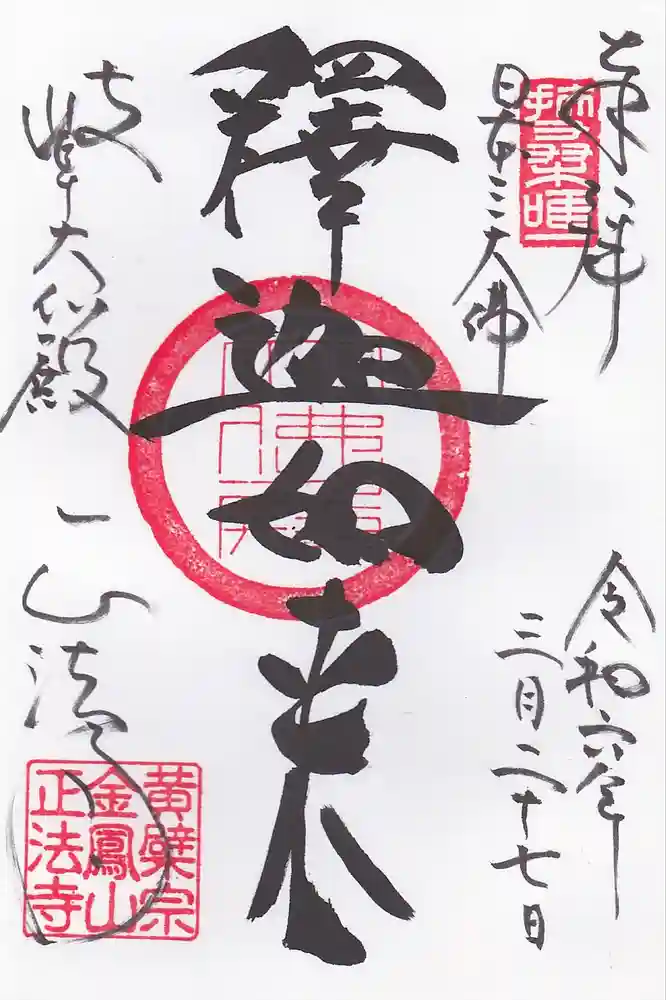 奉拝
日本三大佛
令和六年
三月二十七日
釋迦如来
岐阜大仏殿
正法寺
黄檗宗
金鳳山
正法寺